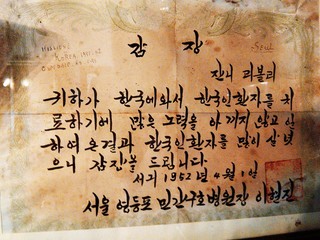 감 장
쟌니 리볼리
귀하가 한국에와서 한국인환자를 치
료하기에 많은 노력을 아끼지 않고 일
하여 온결과 한국인환자를 많이 살렸
으니 감장을 드립니다.
서기 1952년 4월 1일
서울 영등포 민간구호병원장 이현진